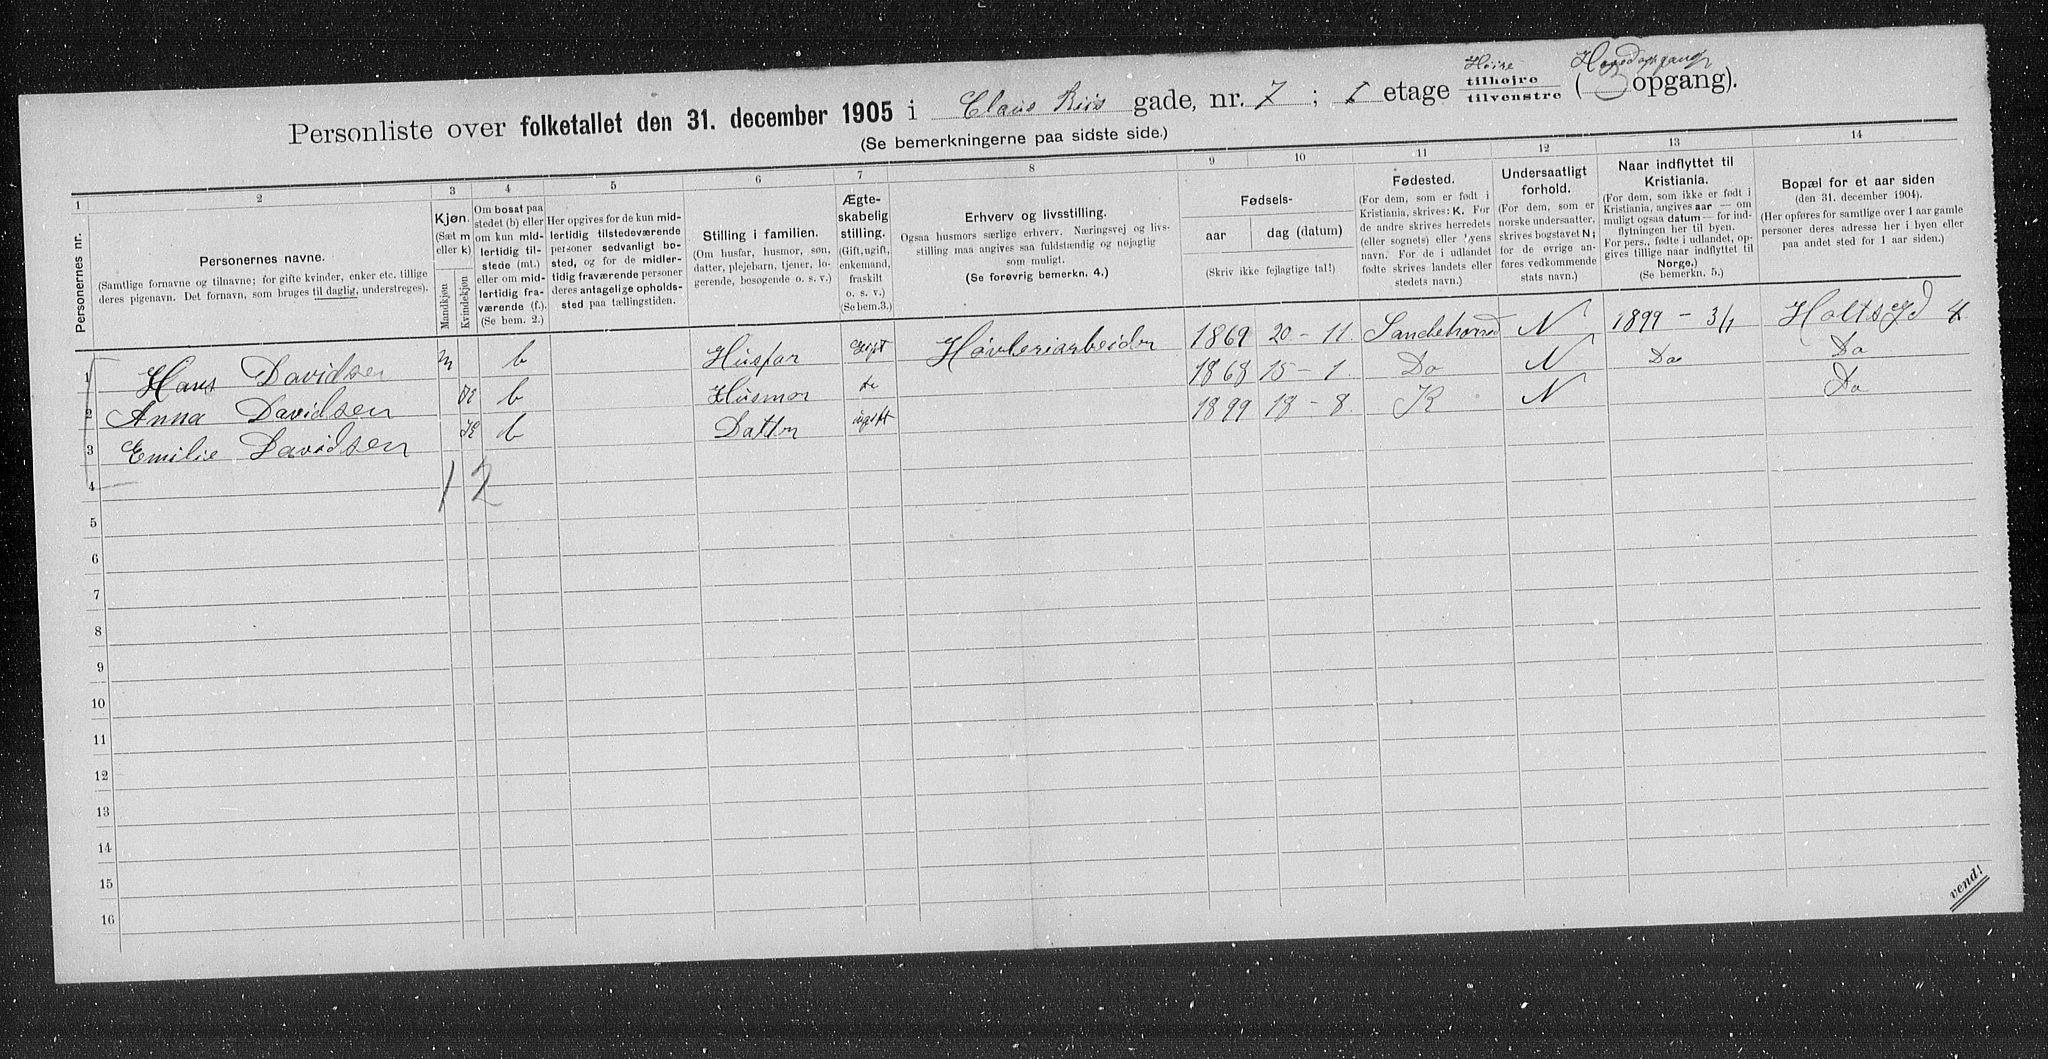 Personliste over folketallet den 31. december 1905 i Claus Riis gade, nr. 7 ; I etage Høire tilhøjre tilvenstre ( opgang).
(Se bemerkningerne paa sidste side.)
1 2 3 4 5 6 7 8 9 10 11 12 13 14
Personernes nr.
Personernes navne.
(Samtlige fornavne og tilnavne; for gifte kvinder, enker etc. tillige
deres pigenavn. Det fornavn, som bruges til daglig, understreges).
Kjøn.
(Sæt m
eller k)
Mandkjøn
Kvindekjøn
Om bosat paa
stedet (b) eller
om kun mid-
lertidig til-
stede (mt.)
eller om mid-
lertidig fra-
værende (f.).
(Se bem. 2.)
Her opgives for de kun mid-
lertidig tilstedeværende
personer sedvanligt bo-
sted, og for de midler-
tidig fraværende personer
deres antagelige opholds-
sted paa tællingstiden.
Stilling i familien.
(Om husfar, husmor, søn,
datter, plejebarn, tjener, lo-
gerende, besøgende o. s. v.)
Ægte-
skabelig
stilling.
(Gift, ugift,
enkemand,
fraskilt
o. s. v.)
(Se bem.3.)
Erhverv og livsstilling.
Ogsaa husmors særlige erhverv. Næringsvej og livs-
stilling maa angives saa fuldstændig og nøjagtig
som muligt.
(Se forøvrig bemerkn. 4.)
Fødsels-
aar
dag (datum)
(Skriv ikke fejlagtige tal!)
Fødested.
(For dem, som er født i
Kristiania, skrives: K. For
de andre skrives herredets
(eller sognets) eller byens
navn. For de i udlandet
fødte skrives landets eller
stedets navn.)
Undersaatligt
forhold.
(For dem, som er
norske undersaatter,
skrives bogstavet N;
for de øvrige an-
føres vedkommende
stats navn.)
Naar indflyttet til
Kristiania.
(For dem, som ikke er født i
Kristiania, angives aar — om
muligt ogsaa datum — for ind-
flytningen her til byen.
For pers., fødte i udlandet, op-
gives tillige naar indflyttet til
Norge.)
(Se bemerkn. 5.)
Bopæl for et aar siden
(den 31. december 1904).
(Her opføres for samtlige over 1 aar gamle
personer deres adresse her i byen eller
paa andet sted for 1 aar siden.)
1 Hans Davidsen m b Husfar gift Høvleriarbeider 1869 20-11. N 1899 - 3/4
2 Anna Davidsen K b Husmor do 1868 15-1. Do N Do Do
3 Emilie Davidsen K b Datter ugift 1899 18-8. K N Do
4
1 2
5
6
7
8
9
10
11
12
13
14
15
16
vend!